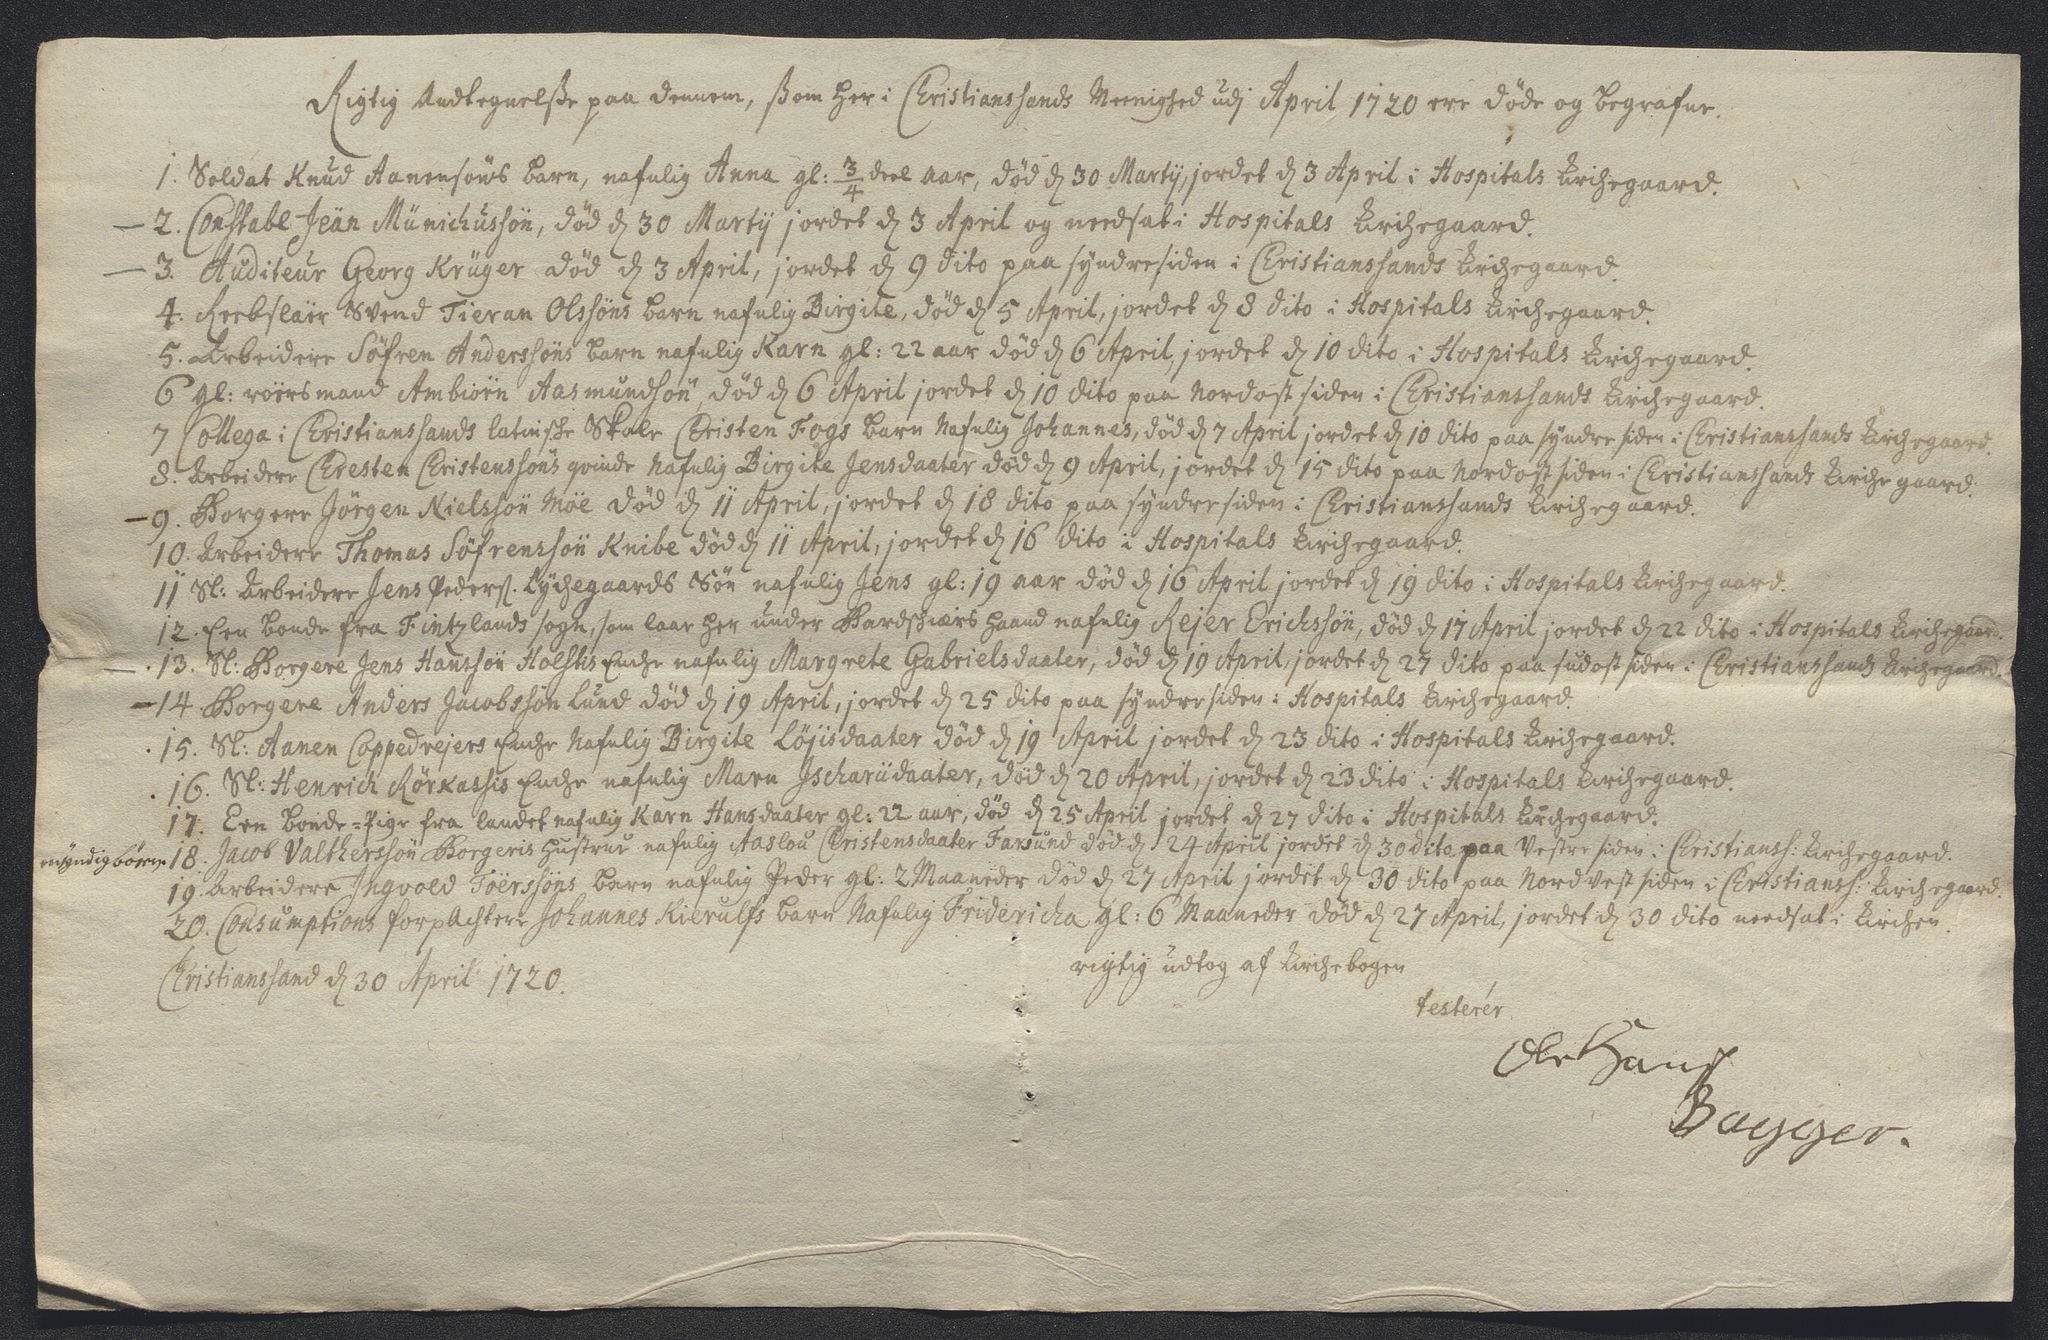 Rigtig Andtegnelsße paa dennem, ßom her i Christianssands Meenighed udj April 1720 ere døde og begrafne.
1. Soldat Knud Aanensøns barn, nafnlig Anna gl: 3/4 deel aar, død d 30 Martij, jordet d 3 April i Hospitals Kirchegaard.
2. Constabel Jeän Münichussøn, død d 30 Martij jordet d 3 April og needsat i Hospitals Kirchegaard.
3. Auditeur Georg Krüger død d 3 April, jordet d 9 dito paa syndresiden i Christianssands Kirchegaard.
4. Reebslaér Svend Tieran Olssøns barn nafnlig Birgite, død d 5 April, jordet d 8 dito i Hospitals Kirchegaard.
5. Arbeidere Söfren Anderssøns barn nafnlig Karn gl: 22 aar død d 6 April, jordet d 10 dito i Hospitals Kirchegaard.
6 gl: roersmand Ambiörn Aasmundsøn, død d 6 April jordet d 10 dito paa Nordost siden i Christianssands Kirchegaard.
7 Collega i Christianssands latinsche Skole Christen Fogs barn Nafnlig Johannes, død d 7 April jordet d 10 dito paa syndre siden i Christianssands Kirchegaard.
8. Arbeidere Chresten Christenssøns qvinde Nafnlig Birgite Jensdaater død d 9 April, jordet d 15 dito paa Nordost siden i Christianssands Kirchegaard.
9. Borgere Jörgen Nielssøn Möe død d 11 April, jordet d 18 dito paa syndresiden i Christianssands Kirchegaard.
10. Arbeidere Thomas Söfrenssøn Knibe død d 11 April, jordet d 16 dito i Hospitals Kirchegaard.
11 Sl: Arbeidere Jens Peders. Lychegaards Søn nafnlig Jens gl: 19 aar død d 16 April jordet d 19 dito i Hospitals Kirchegaard.
12. Een bonde fra Fintzlands sogn, som laae her under Bardschiærs haand nafnlig Rejer Erichssøn, død d 17 April jordet d 22 dito i Hospitals Kirchegaard.
13. Sl: Borgere Jens Hanssøn Holstis Enche nafnlig Margrete Gabrielsdaater, død d 19 April, jordet d 27 dito paa sudost siden i Christianssands Kirchegaard.
14. Borgere Anders Jacobssøn Lund død d 19 April, jordet d 25 dito paa syndre siden i Hospitals Kirchegaard.
15. Sl: Aanen Coppedrejers Enche Nafnlig Birgite Löjisdaater død d 19 April jordet d 23 dito i Hospitals Kirchegaard.
16. Sl: Henrich Rörkassis Enche nafnlig Marn Jscharidaater, død d 20 April, jordet d 23 dito i Hospitals Kirchegaard.
17. Een bonde-Pige fra landet nafnlig Karn Hansdaater gl: 22 aar, død d 25 April jordet d 27 dito i Hospitals Kirchegaard.
18. Jacob Valtherssøn Borgeris hustrue nafnlig Aaslou Christensdaater Farsund død d 24 April jordet d 30 dito paa Vestre siden i Christianss: Kirchegaard.
19. Arbeidere Jngvold Toerssøns barn nafnlig Peder gl: 2 Maaneder død d 27 April jordet d 30 dito paa Nordvest siden i Christianss: Kirchegaard.
20. Consumptions forpAchtere Johannes Kierulfs barn Nafnlig Fridericha gl: 6 Maaneder død d 27 April, jordet d 30 dito needsat i Kirchen.
Christianssand d 30 April 1720.
rigtig udtog af Kirchebogen
testerér
Ole Hanss
Bagger.